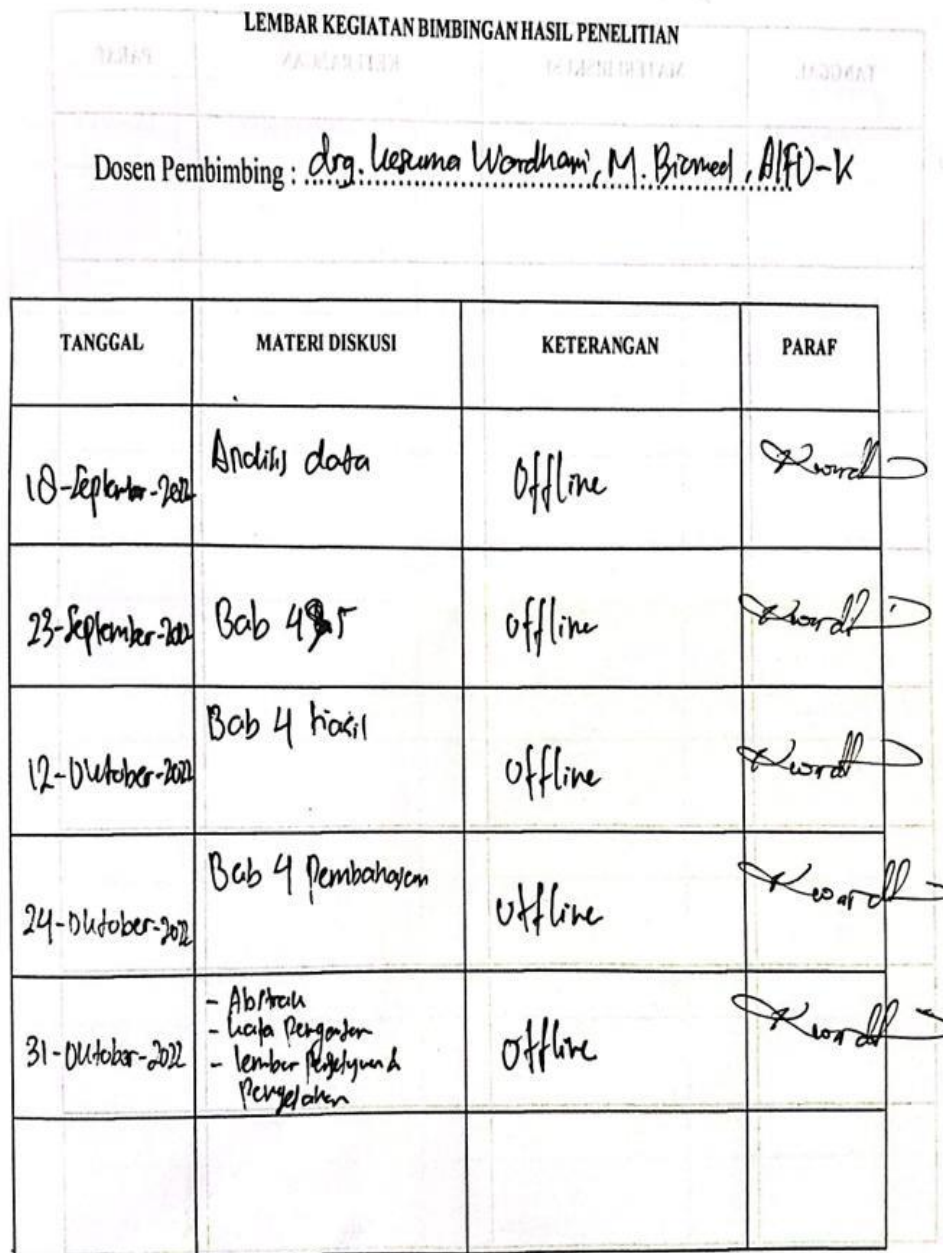 LEMBAR KEGIATAN BIMBINGAN HASIL PENELITIAN
Dosen Pembimbing : drg. Kesuma Wardhani, M. Biomed, AIFO-K
TANGGAL MATERI DISKUSI KETERANGAN PARAF
18-September-2022 Analisis data Offline
23-September-2022 Bab 4 & 5 Offline
12-Oktober-2022 Bab 4 Hasil Offline
24-Oktober-2022 Bab 4 Pembahasan Offline
31-Oktober-2022 - Abstrak Offline
- Kata Pengantar
- lembar Persetujuan &
Pengesahan